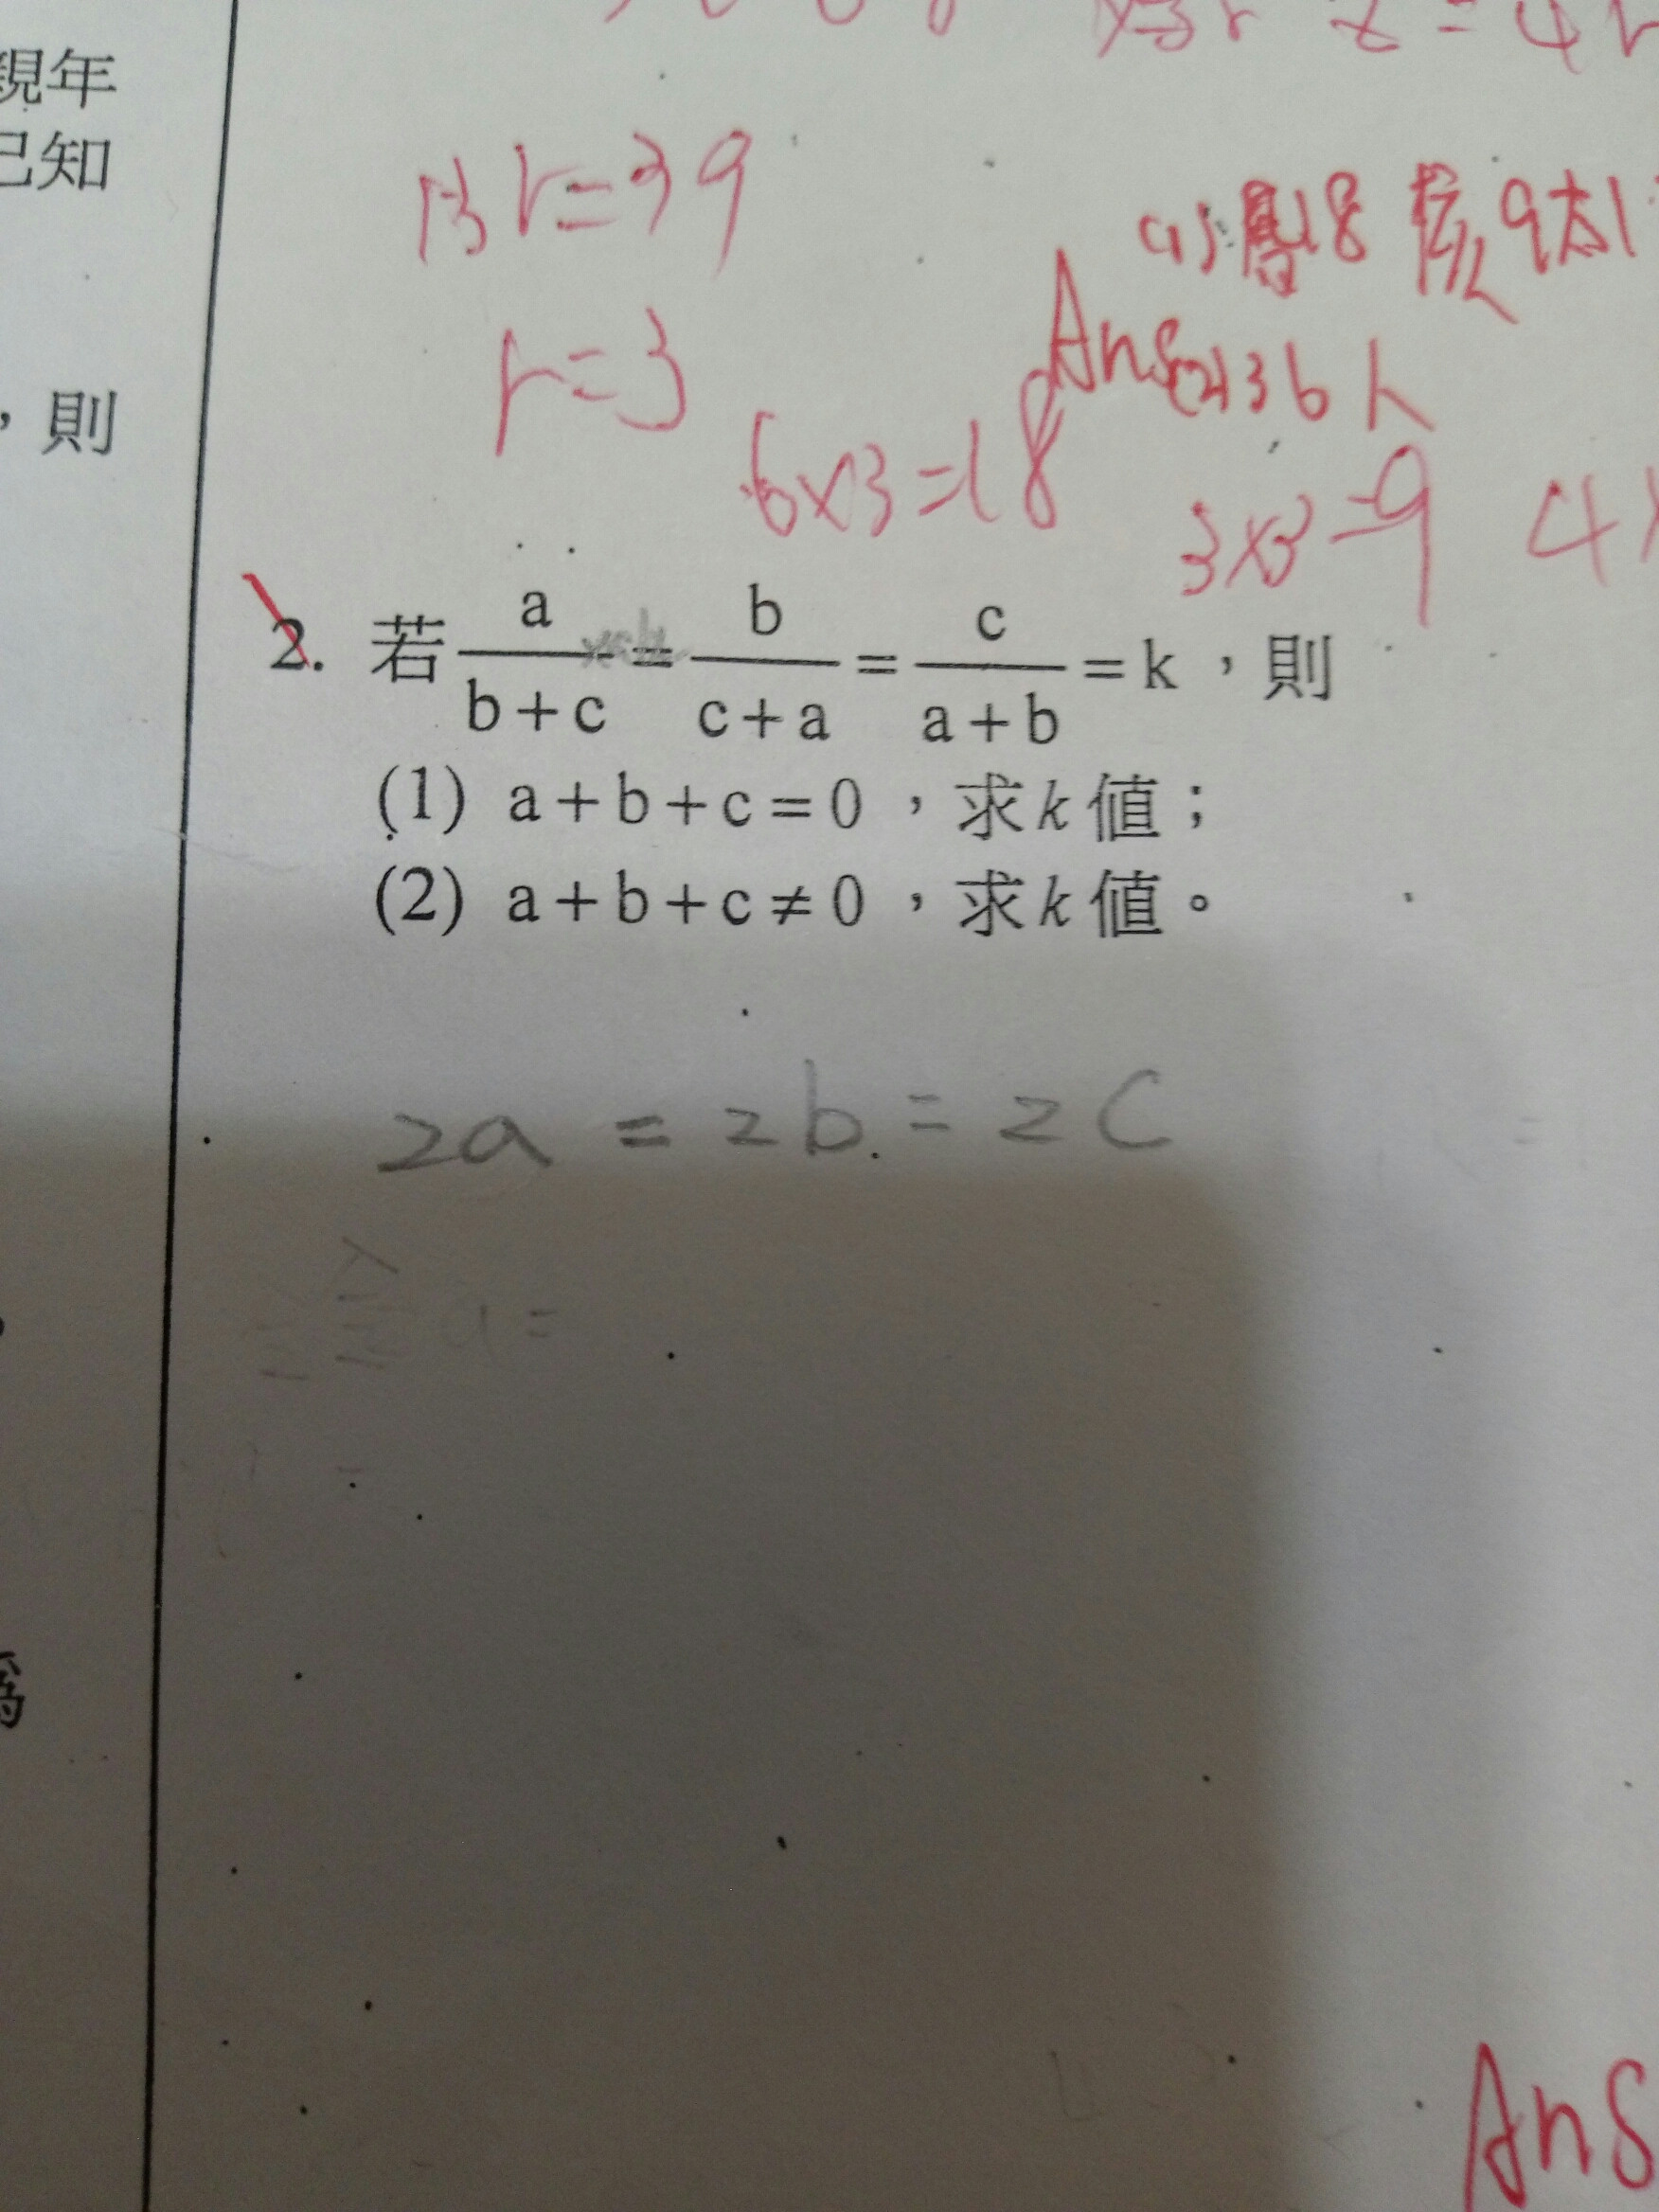 親年
已知
，則
13r=39
r=3
6x3=18
Ans(2)36人
3x3=9
2. 若 a/(b+c) = b/(c+a) = c/(a+b) = k，則
(1) a+b+c=0，求k值；
(2) a+b+c≠0，求k值。
2a = 2b = 2C
a=
Ans